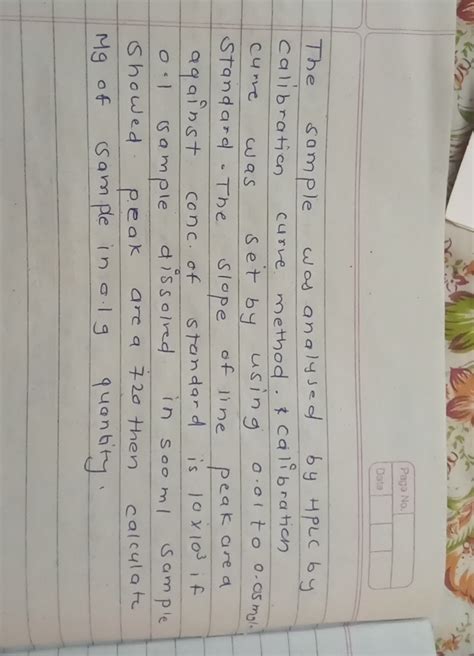 Page No.
Date
The sample was analysed by HPLC by
calibration curve method. & calibration
curve was set by using 0.01 to 0.05 mg/
standard. The slope of line peak area
against conc. of standard is 10x10³ if
0.1 sample dissolved in 500ml sample
showed peak area 720 then calculate
Mg of sample in 0.1g quantity.